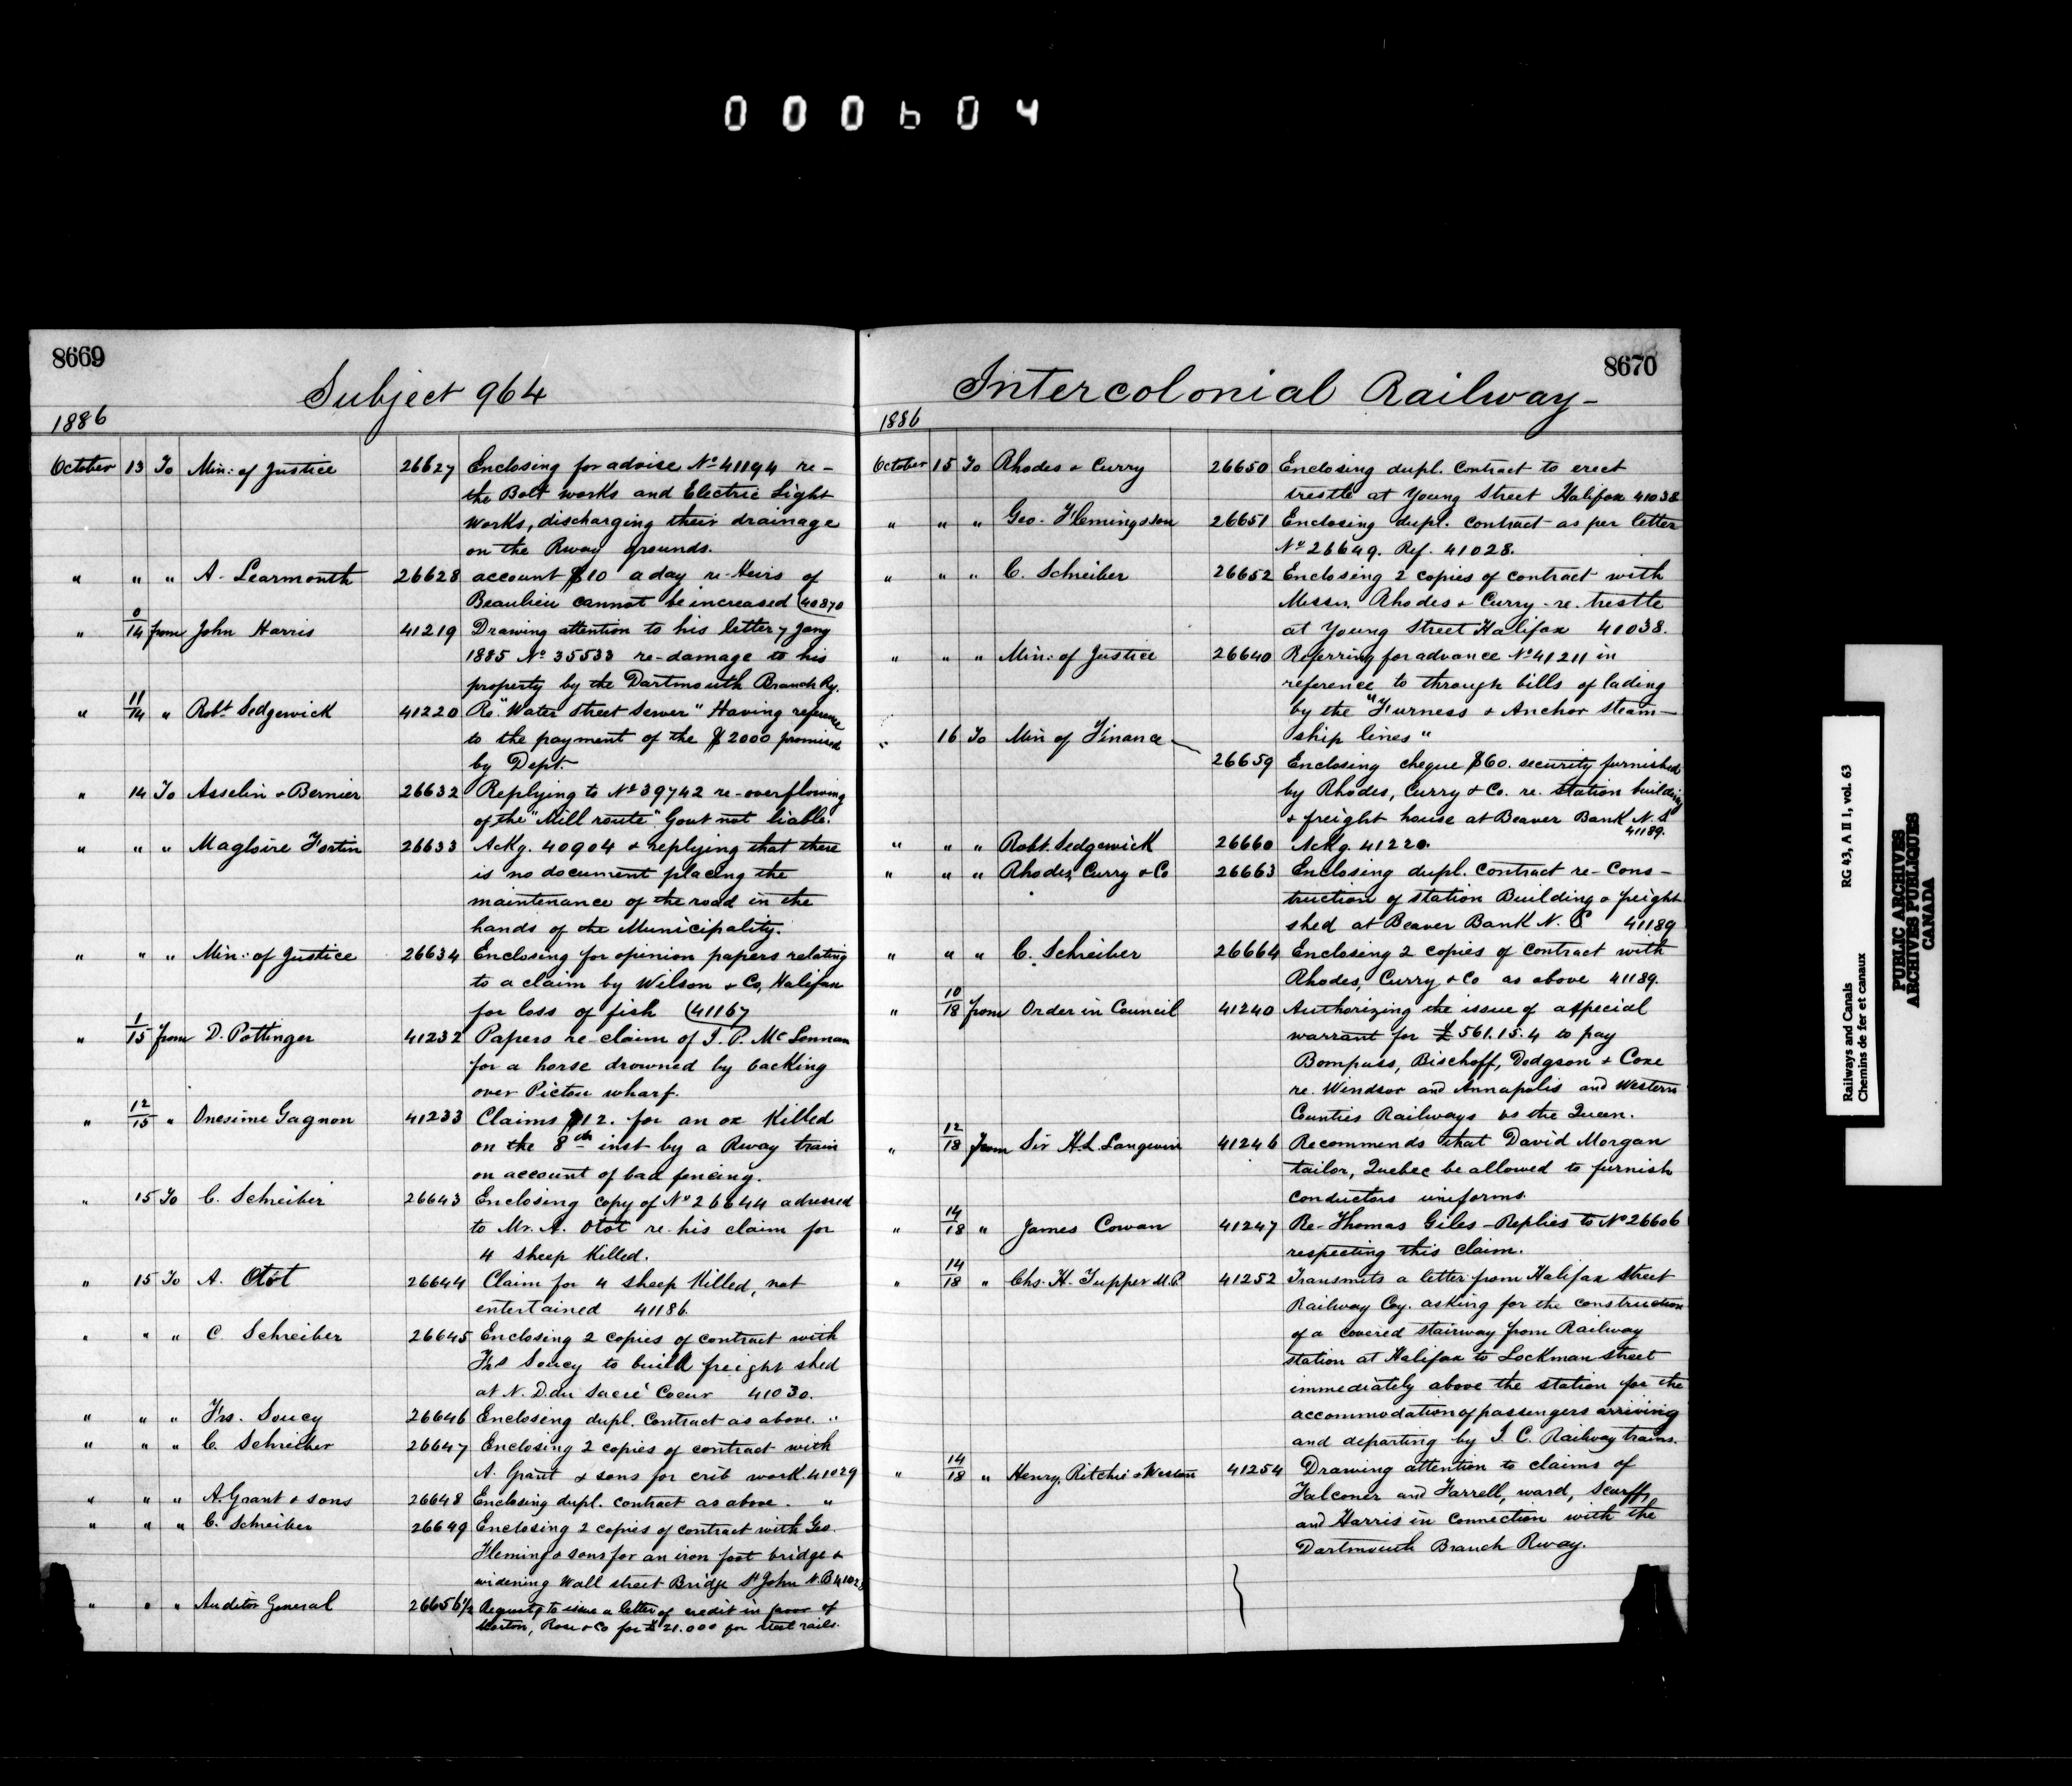 000604
8669
Subject 964
1886
October 13 To Min: of Justice 26627 Enclosing for advise No 41194 re-
the Bolt works and Electric Light
Works, discharging their drainage
on the Rway grounds.
" " " A. Learmonth 26628 account $10 a day re-Heirs of
Beaulieu cannot be increased (40870
" 14 from John Harris 41219 Drawing attention to his letter 7 Jany
1885 No 35533 re-damage to his
property by the Dartmouth Branch Ry.
" 11/14 " Robt Sedgewick 41220 Re "Water Street Sewer" Having reference
to the payment of the $2000 promised
by Dept.
" 14 To Asselin & Bernier 26632 Replying to No 39742 re-overflowing
of the "Mill route" Govt not liable.
" " " Magloire Fortin 26633 Ackg. 40904 & replying that there
is no document placing the
maintenance of the road in the
hands of the Municipality.
" " " Min: of Justice 26634 Enclosing for opinion papers relating
to a claim by Wilson & Co, Halifax
for loss of fish (41167
" 1/15 from D. Pottinger 41232 Papers re-claim of J. P. McLennan
for a horse drowned by backing
over Pictou wharf.
" 12/15 " Onesime Gagnon 41233 Claims $12. for an ox Killed
on the 8th inst by a Rway train
on account of bad fencing.
" 15 To C. Schreiber 26643 Enclosing copy of No 26644 adressed
to Mr. A. Otot re-his claim for
4 sheep Killed.
" 15 To A. Otot 26644 Claim for 4 sheep Killed, not
entertained 41186.
" " " C. Schreiber 26645 Enclosing 2 copies of contract with
Frs Soucy to build freight shed
at N. D. du Sacré Coeur 41030.
" " " Frs. Soucy 26646 Enclosing dupl. Contract as above. "
" " " C. Schreiber 26647 Enclosing 2 copies of contract with
A. Grant & sons for crib work. 41029
" " " A. Grant & sons 26648 Enclosing dupl. contract as above. "
" " " C. Schreiber 26649 Enclosing 2 copies of contract with Geo.
Fleming & sons for an iron foot bridge &
widening Wall street Bridge St John N.B 41028
" " " Auditor General 26656½ Requests to issue a letter of credit in favor of
Morton, Rose & Co for £21.000 for steel rails.
8670
Intercolonial Railway-
1886
October 15 To Rhodes & Curry 26650 Enclosing dupl. Contract to erect
trestle at Young Street Halifax 41038
" " " Geo. Fleming & Son 26651 Enclosing dupl. contract as per letter
No 26649. Ref. 41028.
" " " C. Schreiber 26652 Enclosing 2 copies of contract with
Messrs. Rhodes & Curry-re. trestle
at Young Street Halifax 41038.
" " " Min: of Justice 26640 Referring for advance No 41211 in
reference to through bills of lading
by the "Furness & Anchor Steam-
ship lines"
" 16 To Min of Finance
26659 Enclosing cheque $60. security furnished
by Rhodes, Curry & Co. re. station building
& freight house at Beaver Bank N.S
41189.
" " " Robt. Sedgewick 26660 Ackg. 41220.
" " " Rhodes, Curry & Co 26663 Enclosing dupl. Contract re-Cons-
truction of station Building & freight
shed at Beaver Bank N. S 41189
" " " C. Schreiber 26664 Enclosing 2 copies of contract with
Rhodes, Curry & Co as above 41189.
" 10/18 from Order in Council 41240 Authorizing the issue of a special
warrant for £561.15.4 to pay
Bompass, Bischoff, Dodgson & Coxe
re. Windsor and Annapolis and Western
Counties Railways vs the Queen.
" 12/18 from Sir H.L. Langevin 41246 Recommends that David Morgan
tailor, Quebec be allowed to furnish
conductors uniforms.
" 14/18 " James Cowan 41247 Re-Thomas Giles-Replies to No 26606
respecting this claim.
" 14/18 " Chs. H. Tupper M.P. 41252 Transmits a letter from Halifax Street
Railway Coy. asking for the construction
of a covered stairway from Railway
station at Halifax to Lockman street
immediately above the station for the
accommodation of passengers arriving
and departing by I. C. Railway trains.
" 14/18 " Henry, Ritchie & Weston 41254 Drawing attention to claims of
Falconer and Farrell, ward, Scarff,
and Harris in connection with the
Dartmouth Branch Rway.
Railways and Canals RG 43, A II 1, vol. 63
Chemins de fer et canaux
PUBLIC ARCHIVES
ARCHIVES PUBLIQUES
CANADA